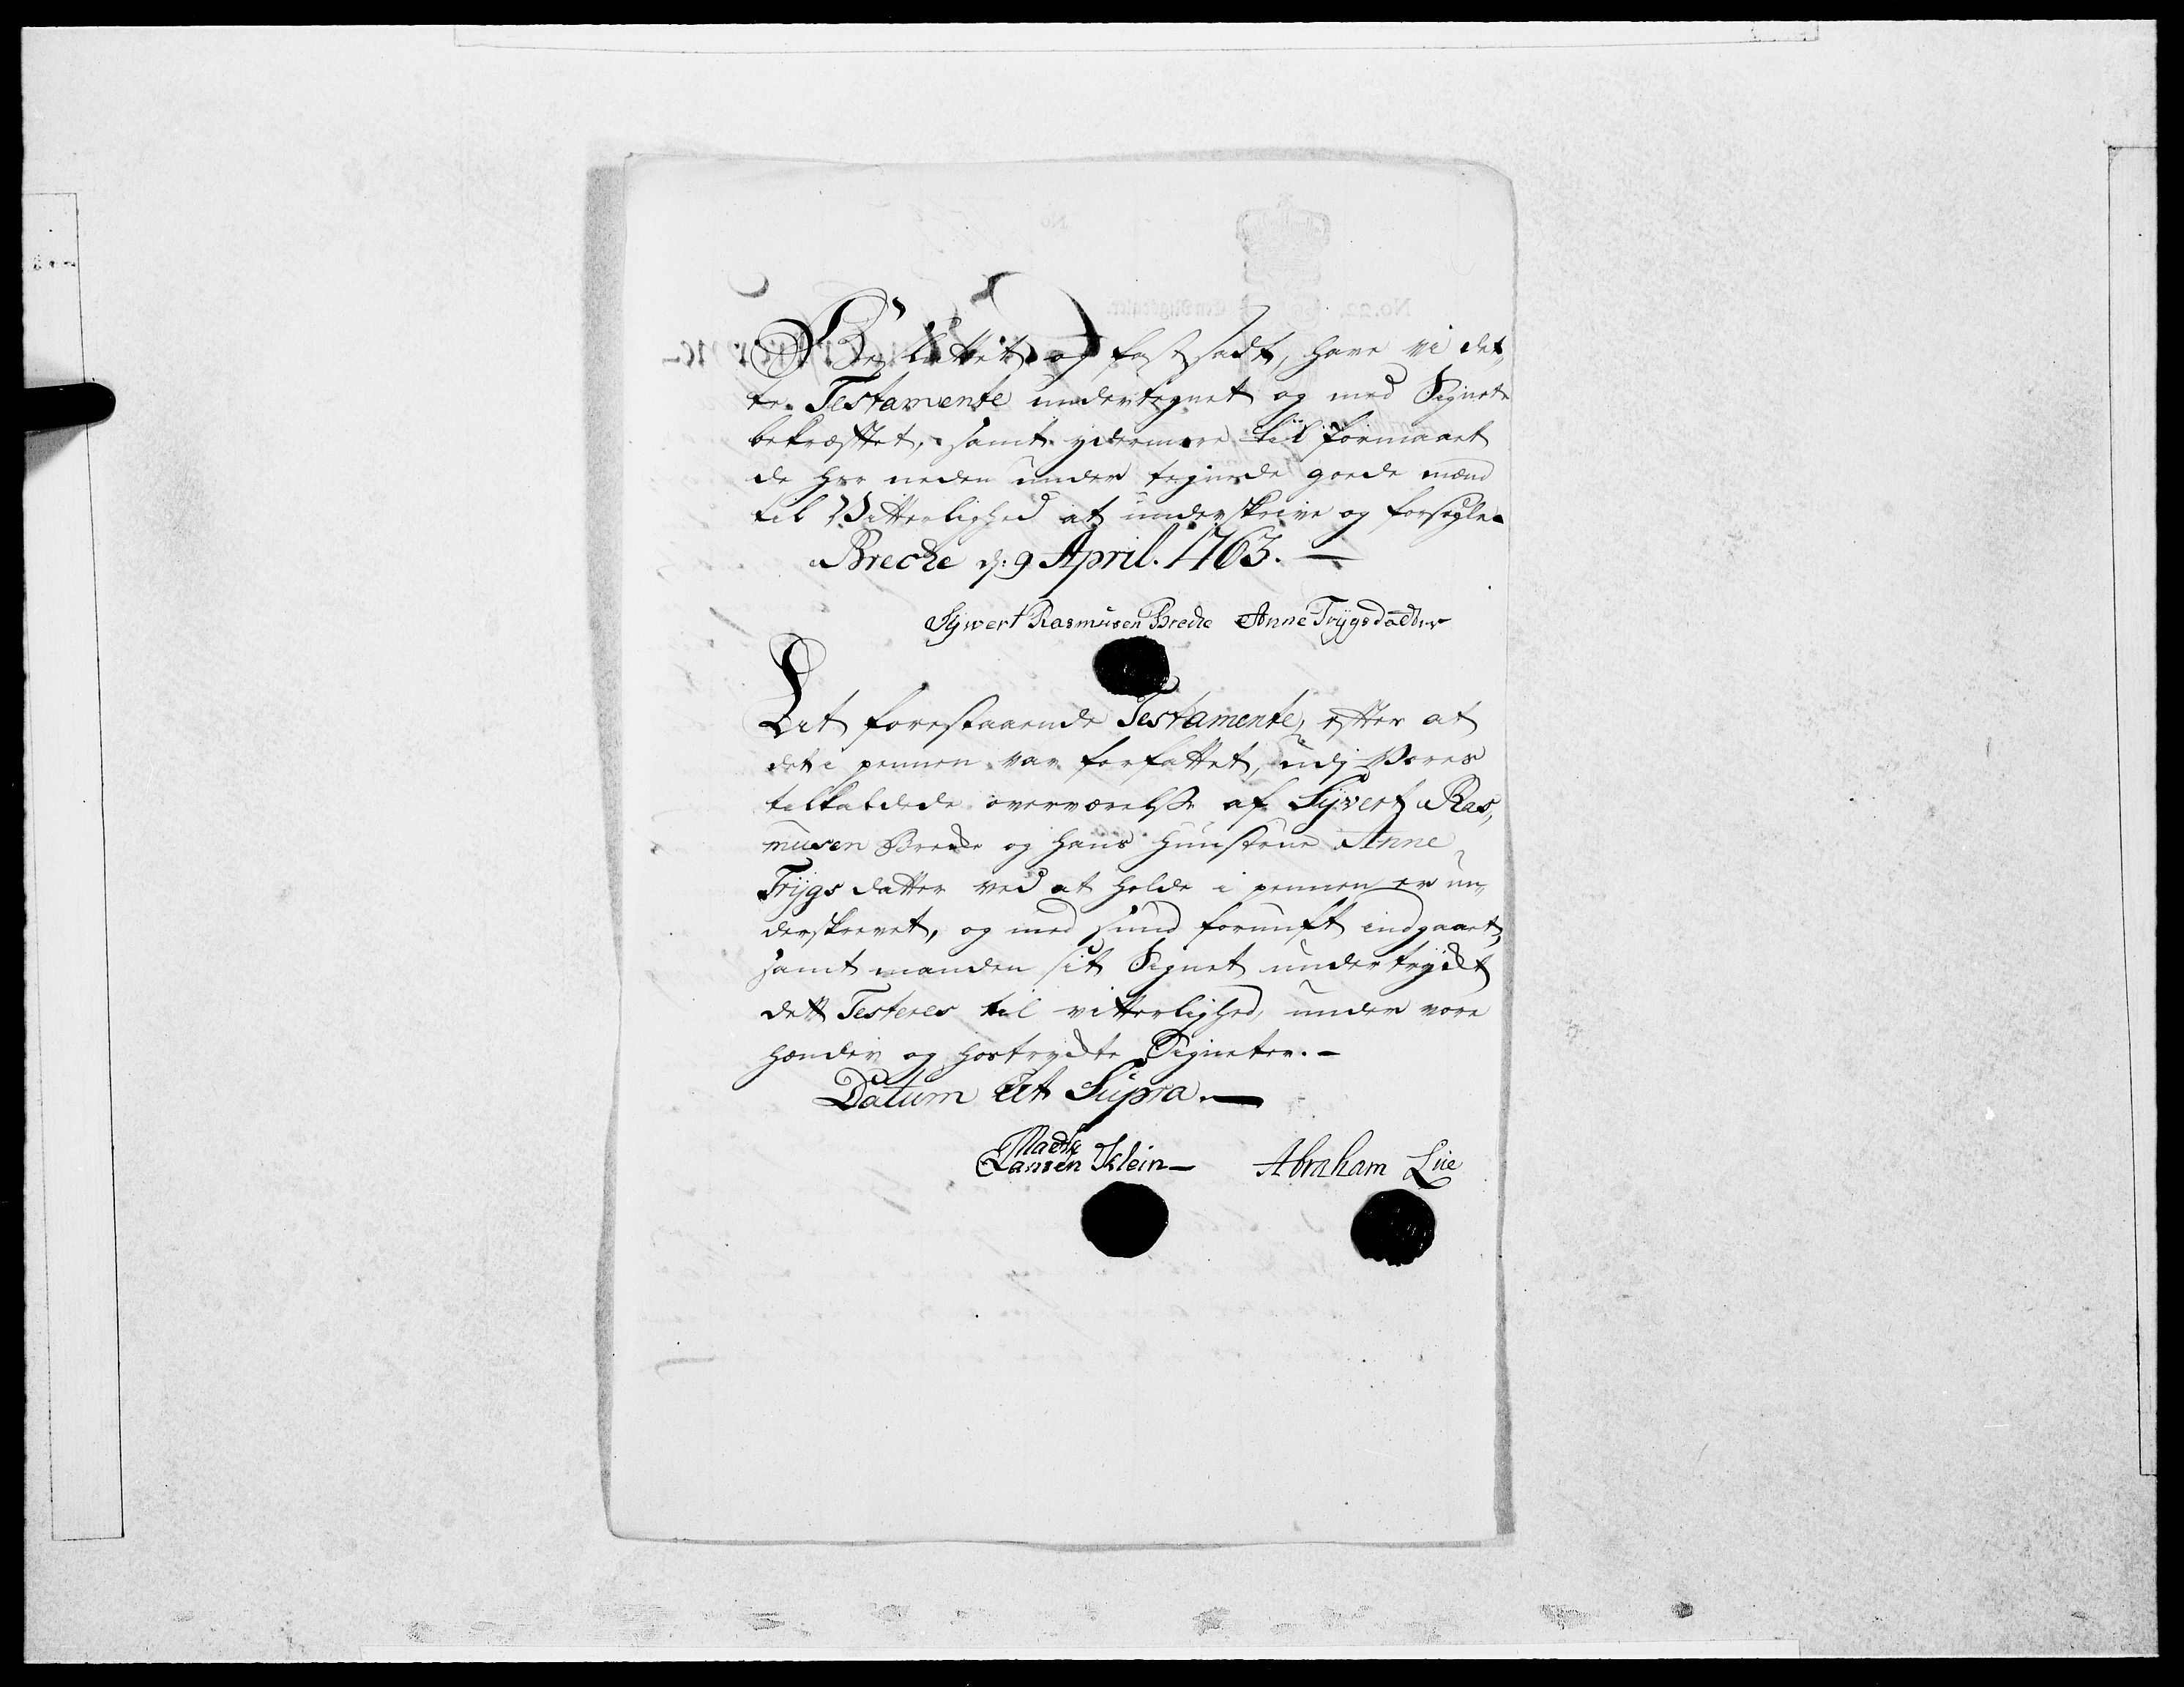 Besluttet og fastsadt, have vi det,
te Testamente undertegnet og med Signet
bekræftet, samt ydermere til formaaet
de her neden under tegnede goede mænd
til Vitterlighed at underskrive og forsegle.
Brecke d: 9 April. 1763. —
Sywert Rasmusen Brecke Anne Trygsdaatter
At forestaaende Testamente, efter at
det i pennen var forfattet, udj Vores
tilkaldede overværelse af Syvert Ras,
musen Brecke og hans Hustrue Anne
Trygs datter ved at holde i pennen er un,
derskrevet, og med sund fornuft indgaaet,
samt manden sit Signet undertrygt
dett Testeres til vitterlighed, under vore
hænder og hostrygte Signeter. –
Datum Ut Supra. —
Madtz
Larssen Klein – Abraham Lie